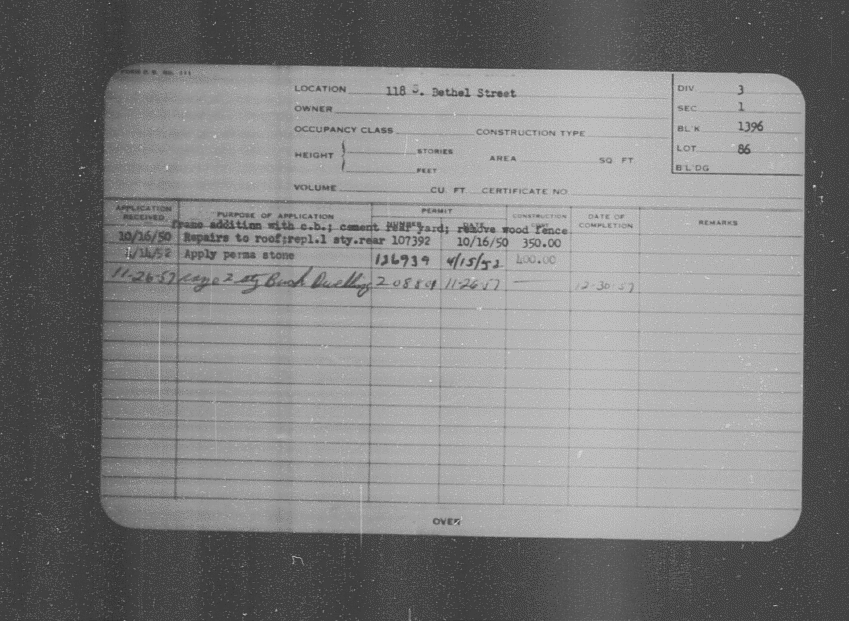 LOCATION 118 S. Bethel Street DIV. 3
OWNER SEC. 1
OCCUPANCY CLASS CONSTRUCTION TYPE BL'K 1396
HEIGHT STORIES AREA SQ. FT. LOT 86
FEET BL'DG
VOLUME CU. FT. CERTIFICATE NO.
APPLICATION RECEIVED PURPOSE OF APPLICATION PERMIT NUMBER DATE CONSTRUCTION DATE OF COMPLETION REMARKS
frame addition with c.b.; cement rear yard; remove wood fence
10/16/50 Repairs to roof;repl.1 sty.rear 107392 10/16/50 350.00
4/14/52 Apply perma stone 126939 4/15/52 400.00
11-26-57 raze 2 sty Dwelling 11-26-57 — 12-30-57
OVER